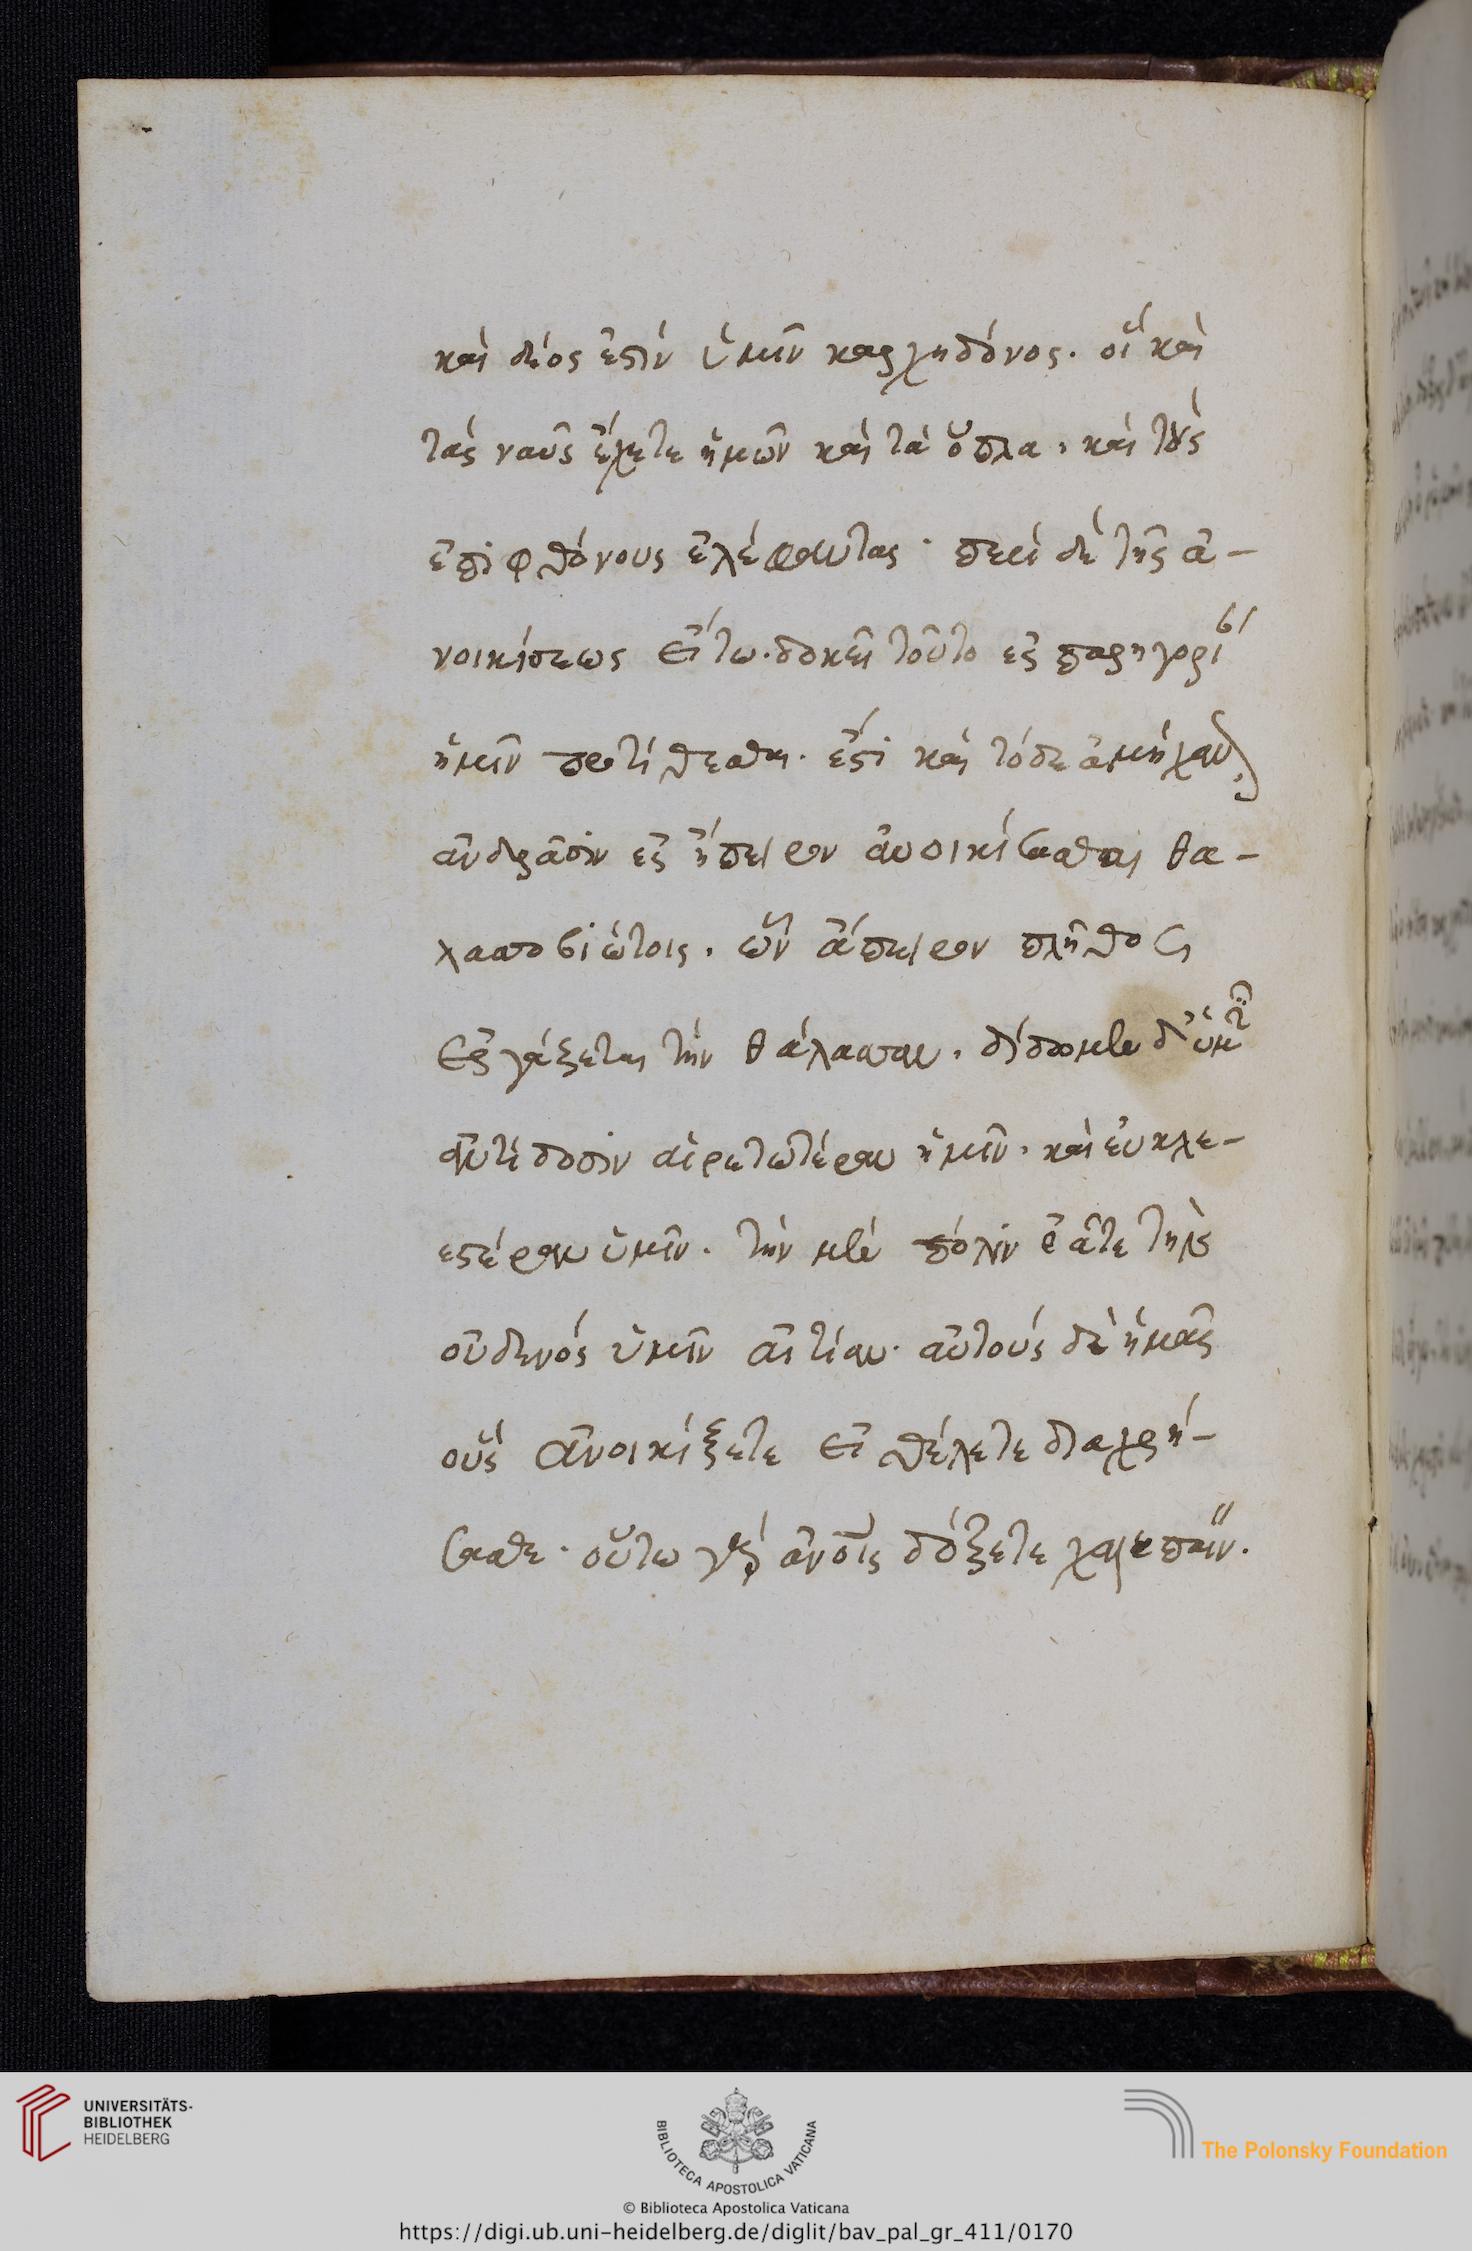 καὶ δέος ἐστὶν ὑμῖν καρχηδόνος. οἳ καὶ
τὰς ναῦς ἔχετε ἡμῶν καὶ τὰ ὅπλα, καὶ τοὺς
ἐπιφθόνους ἐλέφαντας· περὶ δὲ τῆς ἀ-
νοικίσεως εἴ τω δοκεῖ τοῦτο ἐς παρηγορίαν
ἡμῖν προτίθεσθαι. ἔστι καὶ τόδε ἀμήχανον
ἀνδράσιν ἐς ἤπειρον ἀνοικίσασθαι θα-
λασσοβιώτοις. ὧν ἄπειρον πλῆθος
ἐργάζεται τὴν θάλασσαν. δίδομεν δ' ὑμῖν
ἀντίδοσιν αἱρετωτέραν ἡμῖν. καὶ εὐκλε-
εστέραν ὑμῖν. τὴν μὲν πόλιν ἐᾶτε τὴν
οὐδενὸς ὑμῖν αἰτίαν. αὐτοὺς δὲ ἡμᾶς
οὓς ἀνοικίζετε εἰ θέλετε διαχρή-
σασθε. οὕτω γὰρ ἀν̅οις δόξετε χαλεπαίν.
© Biblioteca Apostolica Vaticana
https://digi.ub.uni-heidelberg.de/diglit/bav_pal_gr_411/0170
UNIVERSITÄTS-
BIBLIOTHEK
HEIDELBERG
BIBLIOTECA APOSTOLICA VATICANA
The Polonsky Foundation